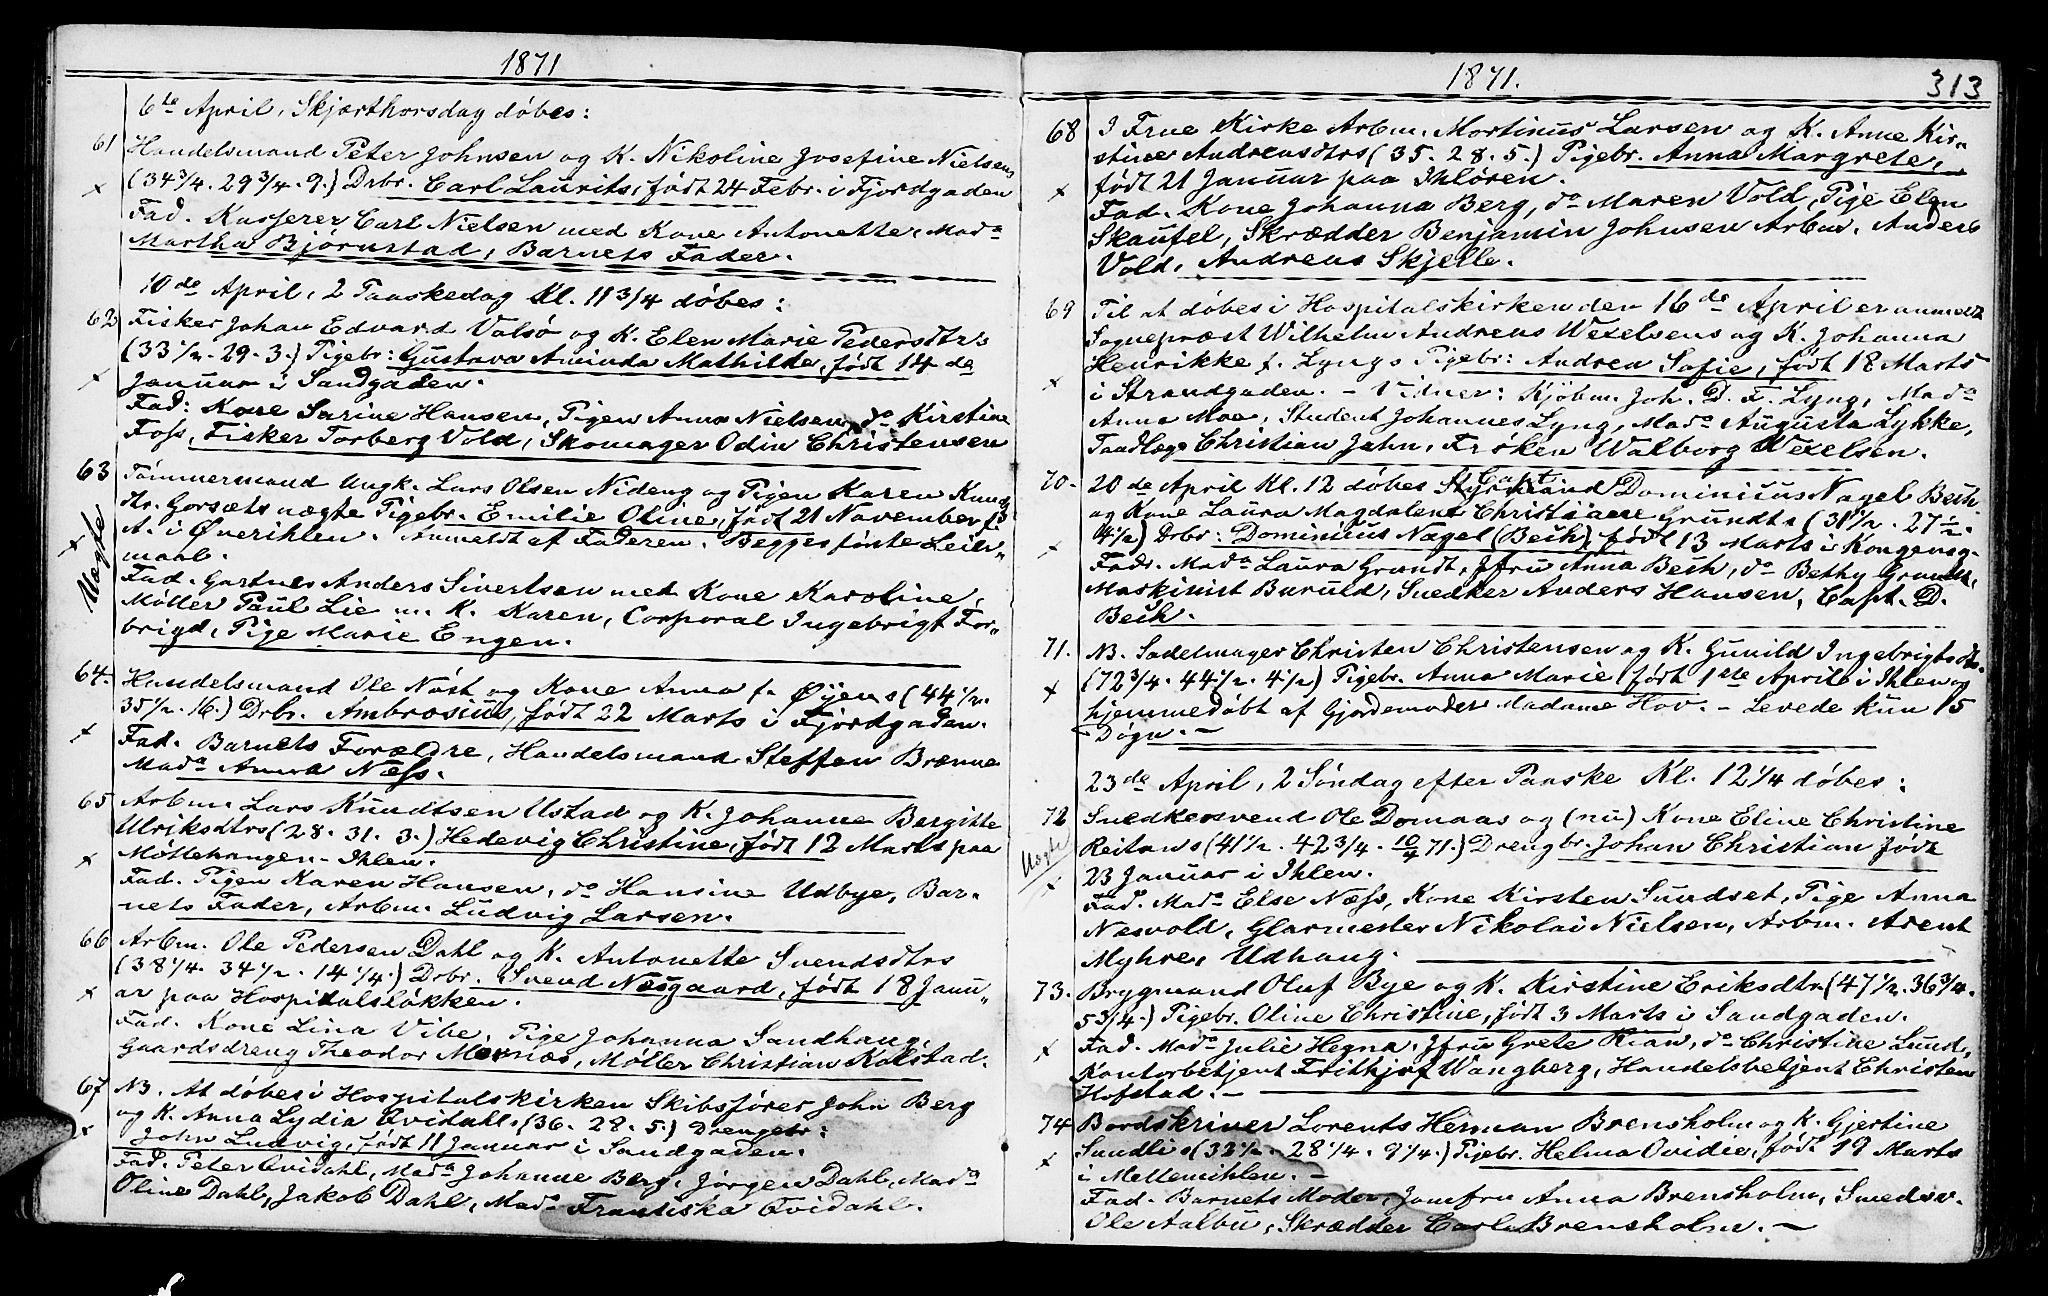 1871
6te April, Skjærthorsdag døbes:
61 Handelsmand Peter Johnsen og K. Nikoline Josefine Nielsens
(34 3/4. 29 3/4. 9.) Drbr. Carl Laurits, født 24 Febr. i Fjordgaden
Fad. Kasserer Carl Nielsen med Kone Antonette, Mada
Martha Bjørnstad, Barnets Fader.
10de April, 2 Paaskedag Kl. 11 3/4 døbes:
62 Fisker Johan Edvard Valsø og K. Elen Marie Pedersdtrs
(33 1/2. 29. 3.) Pigebr: Gustava Aminda Mathilde, født 14de
Januar i Sandgaden.
Fad: Kone Sarine Hansen, Pigen Anna Nielsen, do Kirstine
Foss, Fisker Torberg Vold, Skomager Odin Christensen
63 Tømmermand Ungk. Lars Olsen Nideng og Pigen Karen Knuds
dtr. Gorsets uægte Pigebr. Emilie Oline, født 21 November f.
A. i Øverihlen. Anmeldt af Faderen. Begges første Leier-
maal.
Uægte
Fad. Gartner Anders Sivertsen med Kone Karoline,
Møller Paul Lie m. K. Karen, Corporal Ingebrigt For-
brigd, Pige Marie Engen.
64. Handelsmand Ole Nøst og Kone Anna f. Øyens (44 1/2.
35 1/2. 16.) Drbr. Ambrosius, født 22 Marts i Fjordgaden.
Fad. Barnets Forældre, Handelsmand Steffen Brænne
Mada Anna Næss.
65 Arbm. Lars Knudtsen Ustad og K. Johanne Bergitte
Ulriksdtrs (28. 31. 3.) Hedevig Christine, født 12 Marts paa
Møllehaugen - Ihlen.
Fad. Pigen Karen Hansen, do Hansine Udbye, Bar-
nets Fader, Arbm. Ludvig Larsen.
66 Arbm. Ole Pedersen Dahl og K. Antonette Svendsdtrs
(38 1/4. 34 1/2. 14 1/4.) Drbr. Svend Nesgaard, født 18 Janu-
ar paa Hospitalsløkken.
Fad. Kone Lina Vibe, Pige Johanna Sandhaug,
Gaardsdreng Theodor Mornæs, Møller Christian Kolstad.
67 NB. At døbes i Hospitalskirken Skibsfører John Berg
og K. Anna Lydia Qvidahls (36. 28. 5.) Drengebr:
John Ludvig, født 11 Januar i Sandgaden.
Fad. Peter Qvidahl, Mada Johanne Berg, Jørgen Dahl, Mada
Oline Dahl, Jakob Dahl, Mada Frantiska Qvidahl.
1871. 313
68 I Frue Kirke Arbm. Mortinus Larsen og K. Anne Kir-
stine Andreasdtrs (35. 28. 5.) Pigebr. Anna Margrete,
født 21 Januar paa Ihløren.
Fad. Kone Johanna Berg, do Maren Vold, Pige Elen
Skaufel, Skrædder Benjamin Johnsen Arbm. Anders
Vold, Andreas Skjelle.
69 Til at døbes i Hospitalskirken den 16de April er anmeldt
Sognepræst Wilhelm Andreas Wexelsens og K. Johanna
Henrikke f. Lyngs Pigebr: Andrea Sofie, født 18 Marts
i Strandgaden. - Vidner: Kjøbm. Joh. D. F. Lyng, Mada
Anna Moe, Student Johannes Lyng, Mada Augusta Lykke,
Tandlæge Christian Jahn, Frøken Walborg Wexelsen.
70. 20de April Kl. 12 døbes Capt. Dominicus Nagel Bech
og Kone Laura Magdalene Christiane Grundts (31 1/2. 27 1/2.
4 1/2) Drbr: Dominicus Nagel (Bech), født 13 Marts i Kongensg.
Fadr. Mada Laura Grundt, Jfru Anna Bech, do Bethy Grundt,
Maskinist Baruld, Snedker Anders Hansen, Capt. D.
Bech.
71. NB. Sadelmager Christen Christensen og K. Gunild Ingebrigtsdtrs
(72 3/4. 44 1/2. 4 1/2) Pigebr. Anna Marie, født 1ste April i Ihlen og
hjemmedøbt af Gjordemoder Madame Hov. - Levede kun 15
Døgn. -
23de April, 2 Søndag efter Paaske Kl. 12 1/4 døbes:
72 Snedkersvend Ole Domaas og (nu) Kone Eline Christine
Reitans (41 1/2. 42 3/4. 10/4 71.) Drengbr. Johan Christian født
Uægte
23 Januar i Ihlen.
Fad. Mada Else Næss, Kone Kirsten Sundset, Pige Anna
Nesvold, Glarmester Nikolai Nielsen, Arbm. Arent
Myhre, Udhaug.
73. Brygmand Oluf Bye og K. Kirstine Eriksdtr (47 1/2. 36 3/4.
5 3/4.) Pigebr. Oline Christine, født 3 Marts i Sandgaden.
Fad. Mada Julie Hegna, Jfru Grete Rian, do Christine Lund,
Kontorbetjent Frithjof Wangberg, Handelsbetjent Christen
Hofstad. -
74 Bordskriver Lorents Herman Brensholm og K. Gjertine
Sundlis (32 1/2. 28 1/4. 9 1/4.) Pigebr. Helma Ovidie, født 19 Marts
i Mellemihlen. -
Fad. Barnets Moder, Jomfru Anna Brensholm, Smedsv.
Ole Aalbu, Skrædder Carl Brensholm. -